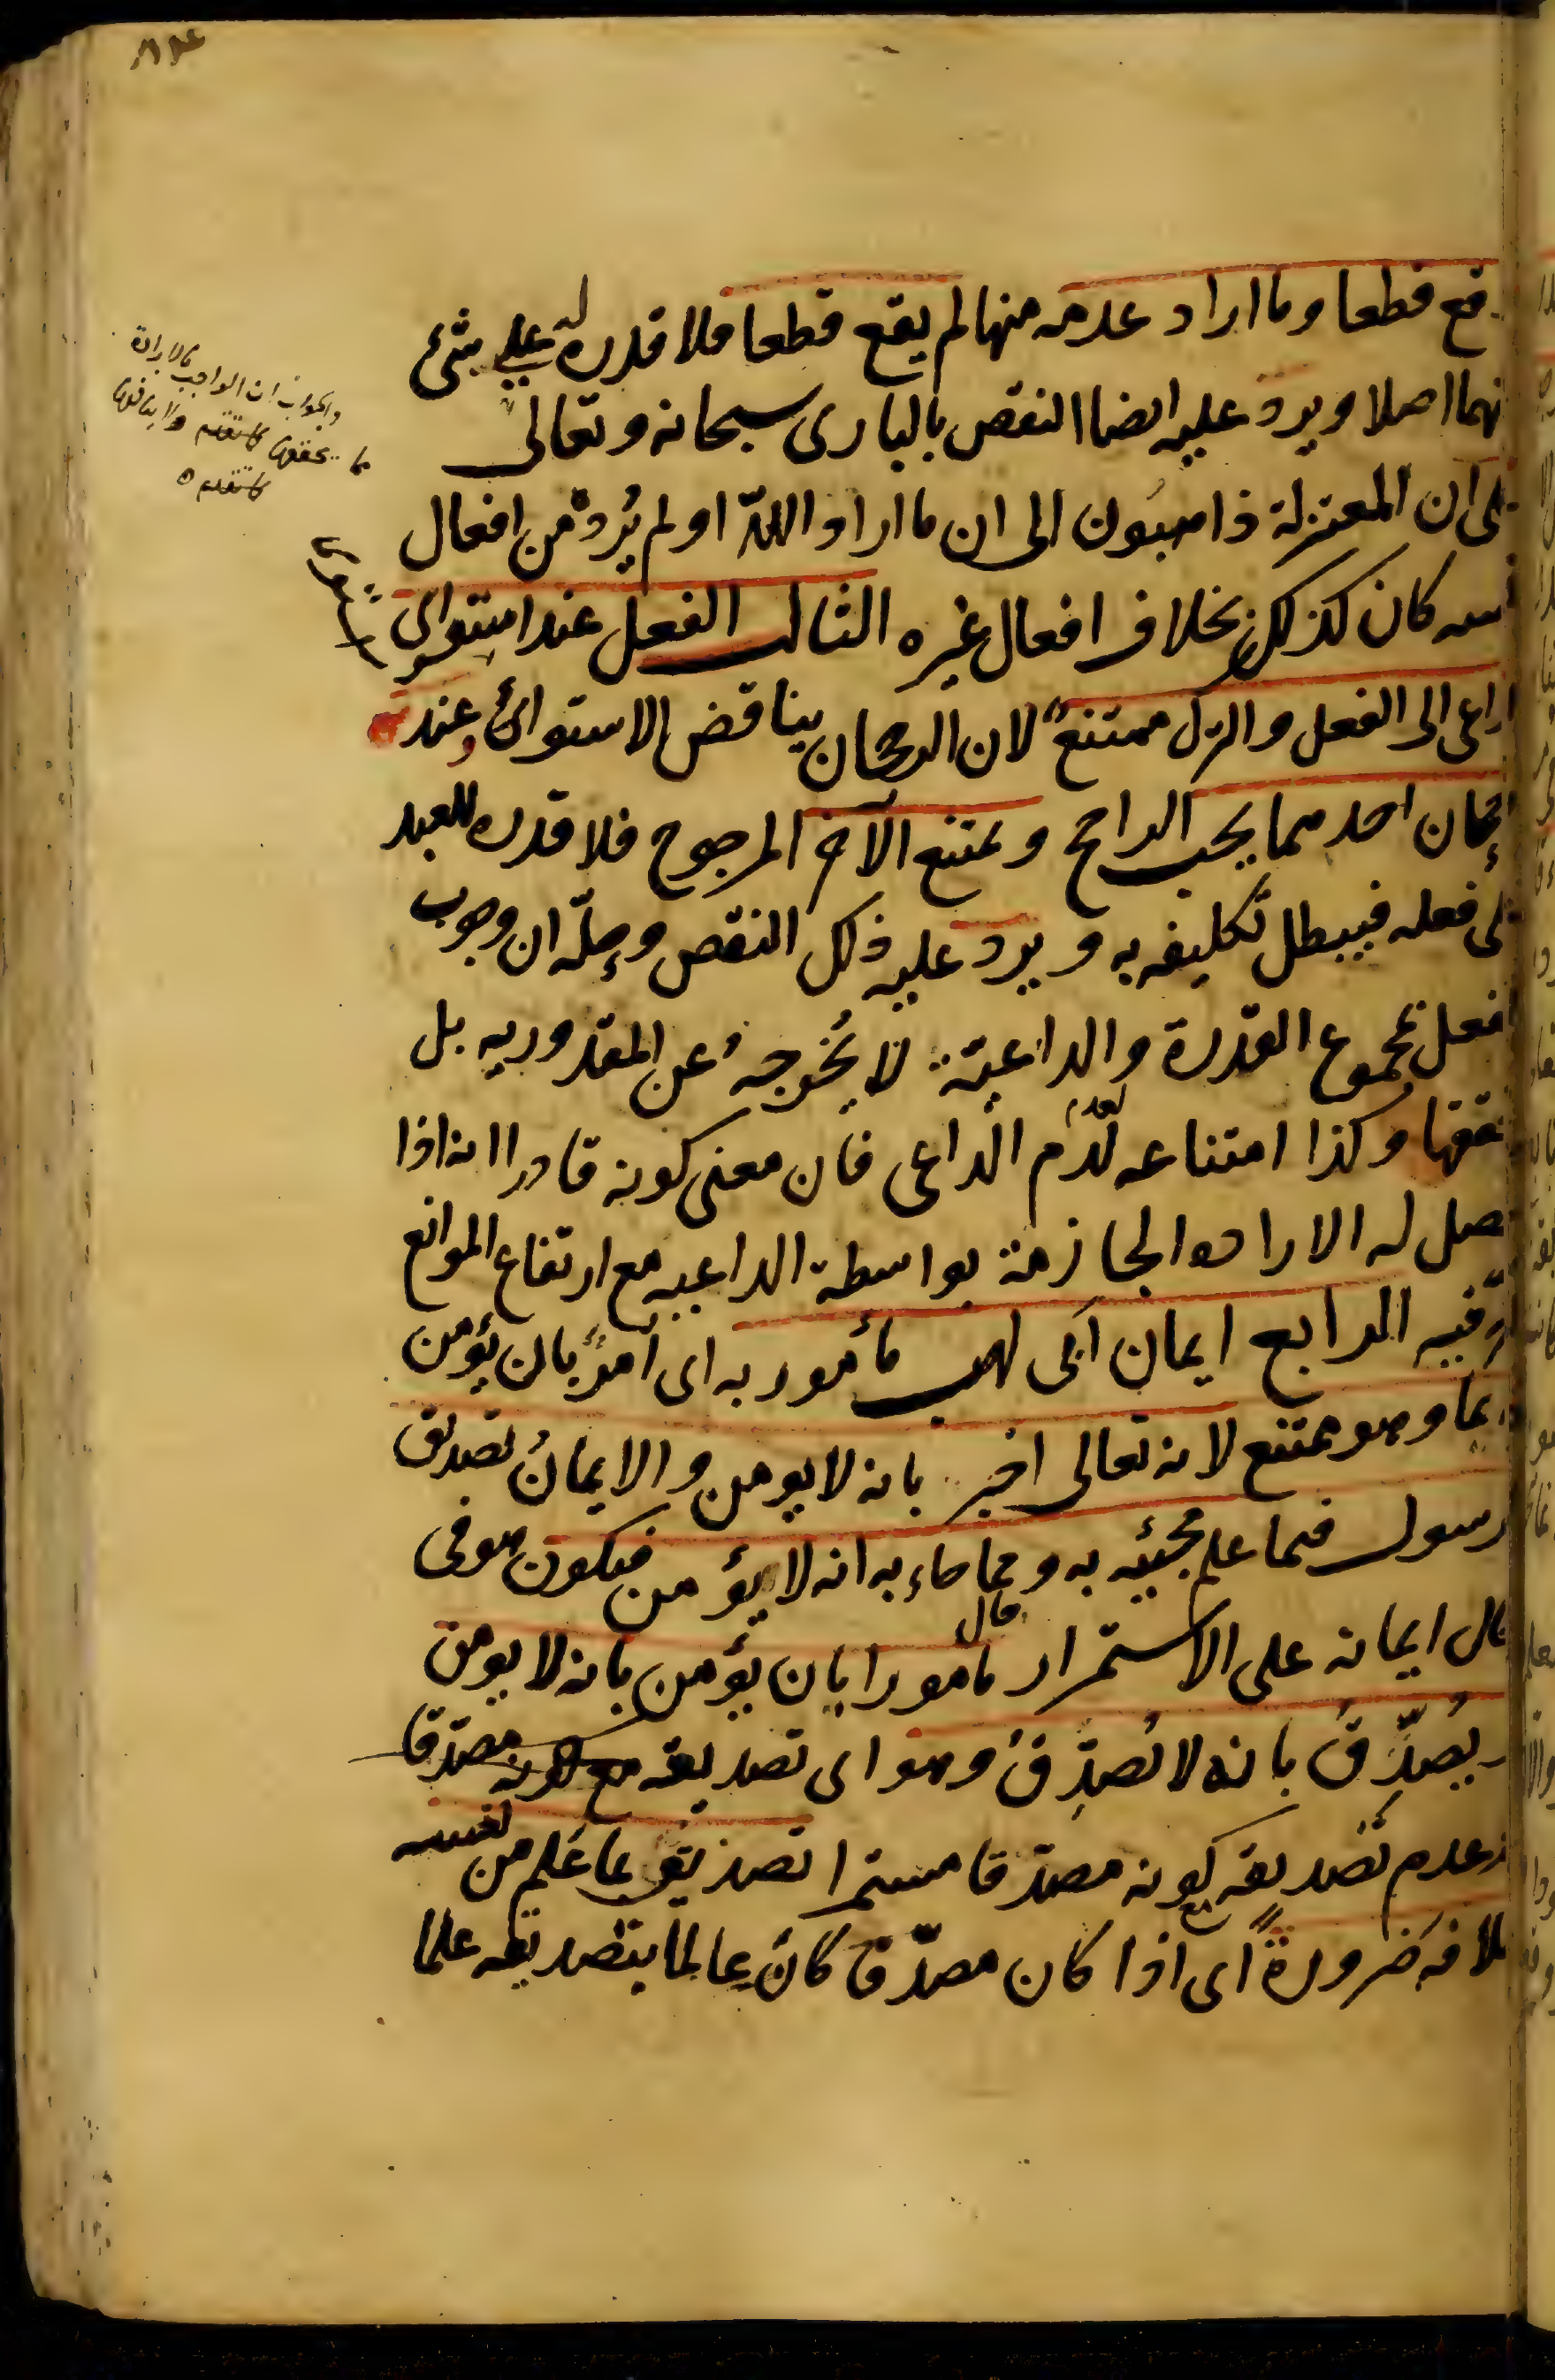 قع قطعا وما اراد عدمه منها لم يقع قطعا فلا قدرة له على شئ
منهما اصلا ويرد عليه ايضا النقض بالبارى سبحانه وتعالى
على ان المعتزلة ذاهبون الى ان ما اراد الله او لم يُرد من افعال
نفسه كان كذلك بخلاف افعال غيره الثالث الفعل عند استواى
الداعى الى الفعل والترك ممتنع لان الرجحان يناقض الاستوائ وعند
رجحان احدهما يجب الراجح ويمتنع الآخر المرجوح فلا قدره للعبد
على فعله فيبطل تكليفه به ويرد عليه ذلك النقض وحلّه ان وجوب
الفعل بمجموع القدرة والداعية لا يُخرجه عن المقدوريه بل
يحققها وكذا امتناعه لعدم الداعى فان معنى كونه قادرا انه اذا
حصل له الاراده الجازمة بواسطة الداعيه مع ارتفاع الموانع
اثّر فيه الرابع ايمان ابى لهب مأمور به اى اُمر بان يؤمن
دايما وهو ممتنع لانه تعالى اخبر بانه لا يومن والايمان تصديق
الرسول فيما علم مجيئه به ومما جاء به انه لا يؤمن فيكون هو فى
حال ايمانه على الاستمرار مامورا بان يؤمن بانه لا يومن
ويُصدّق بانه لا يُصدّق وهو اى تصديقه مع كونه مصدّقا
بعدم تصديقه كونه مصدّقا مستمرا تصديق بما علم من نفسه
خلافه ضرورةً اى اذا كان مصدّقا كان عالما بتصديقه علما
والجواب ان الواجب بالارادة
مما يحققها كما تقدم ولا ينافيها
كما تقدم